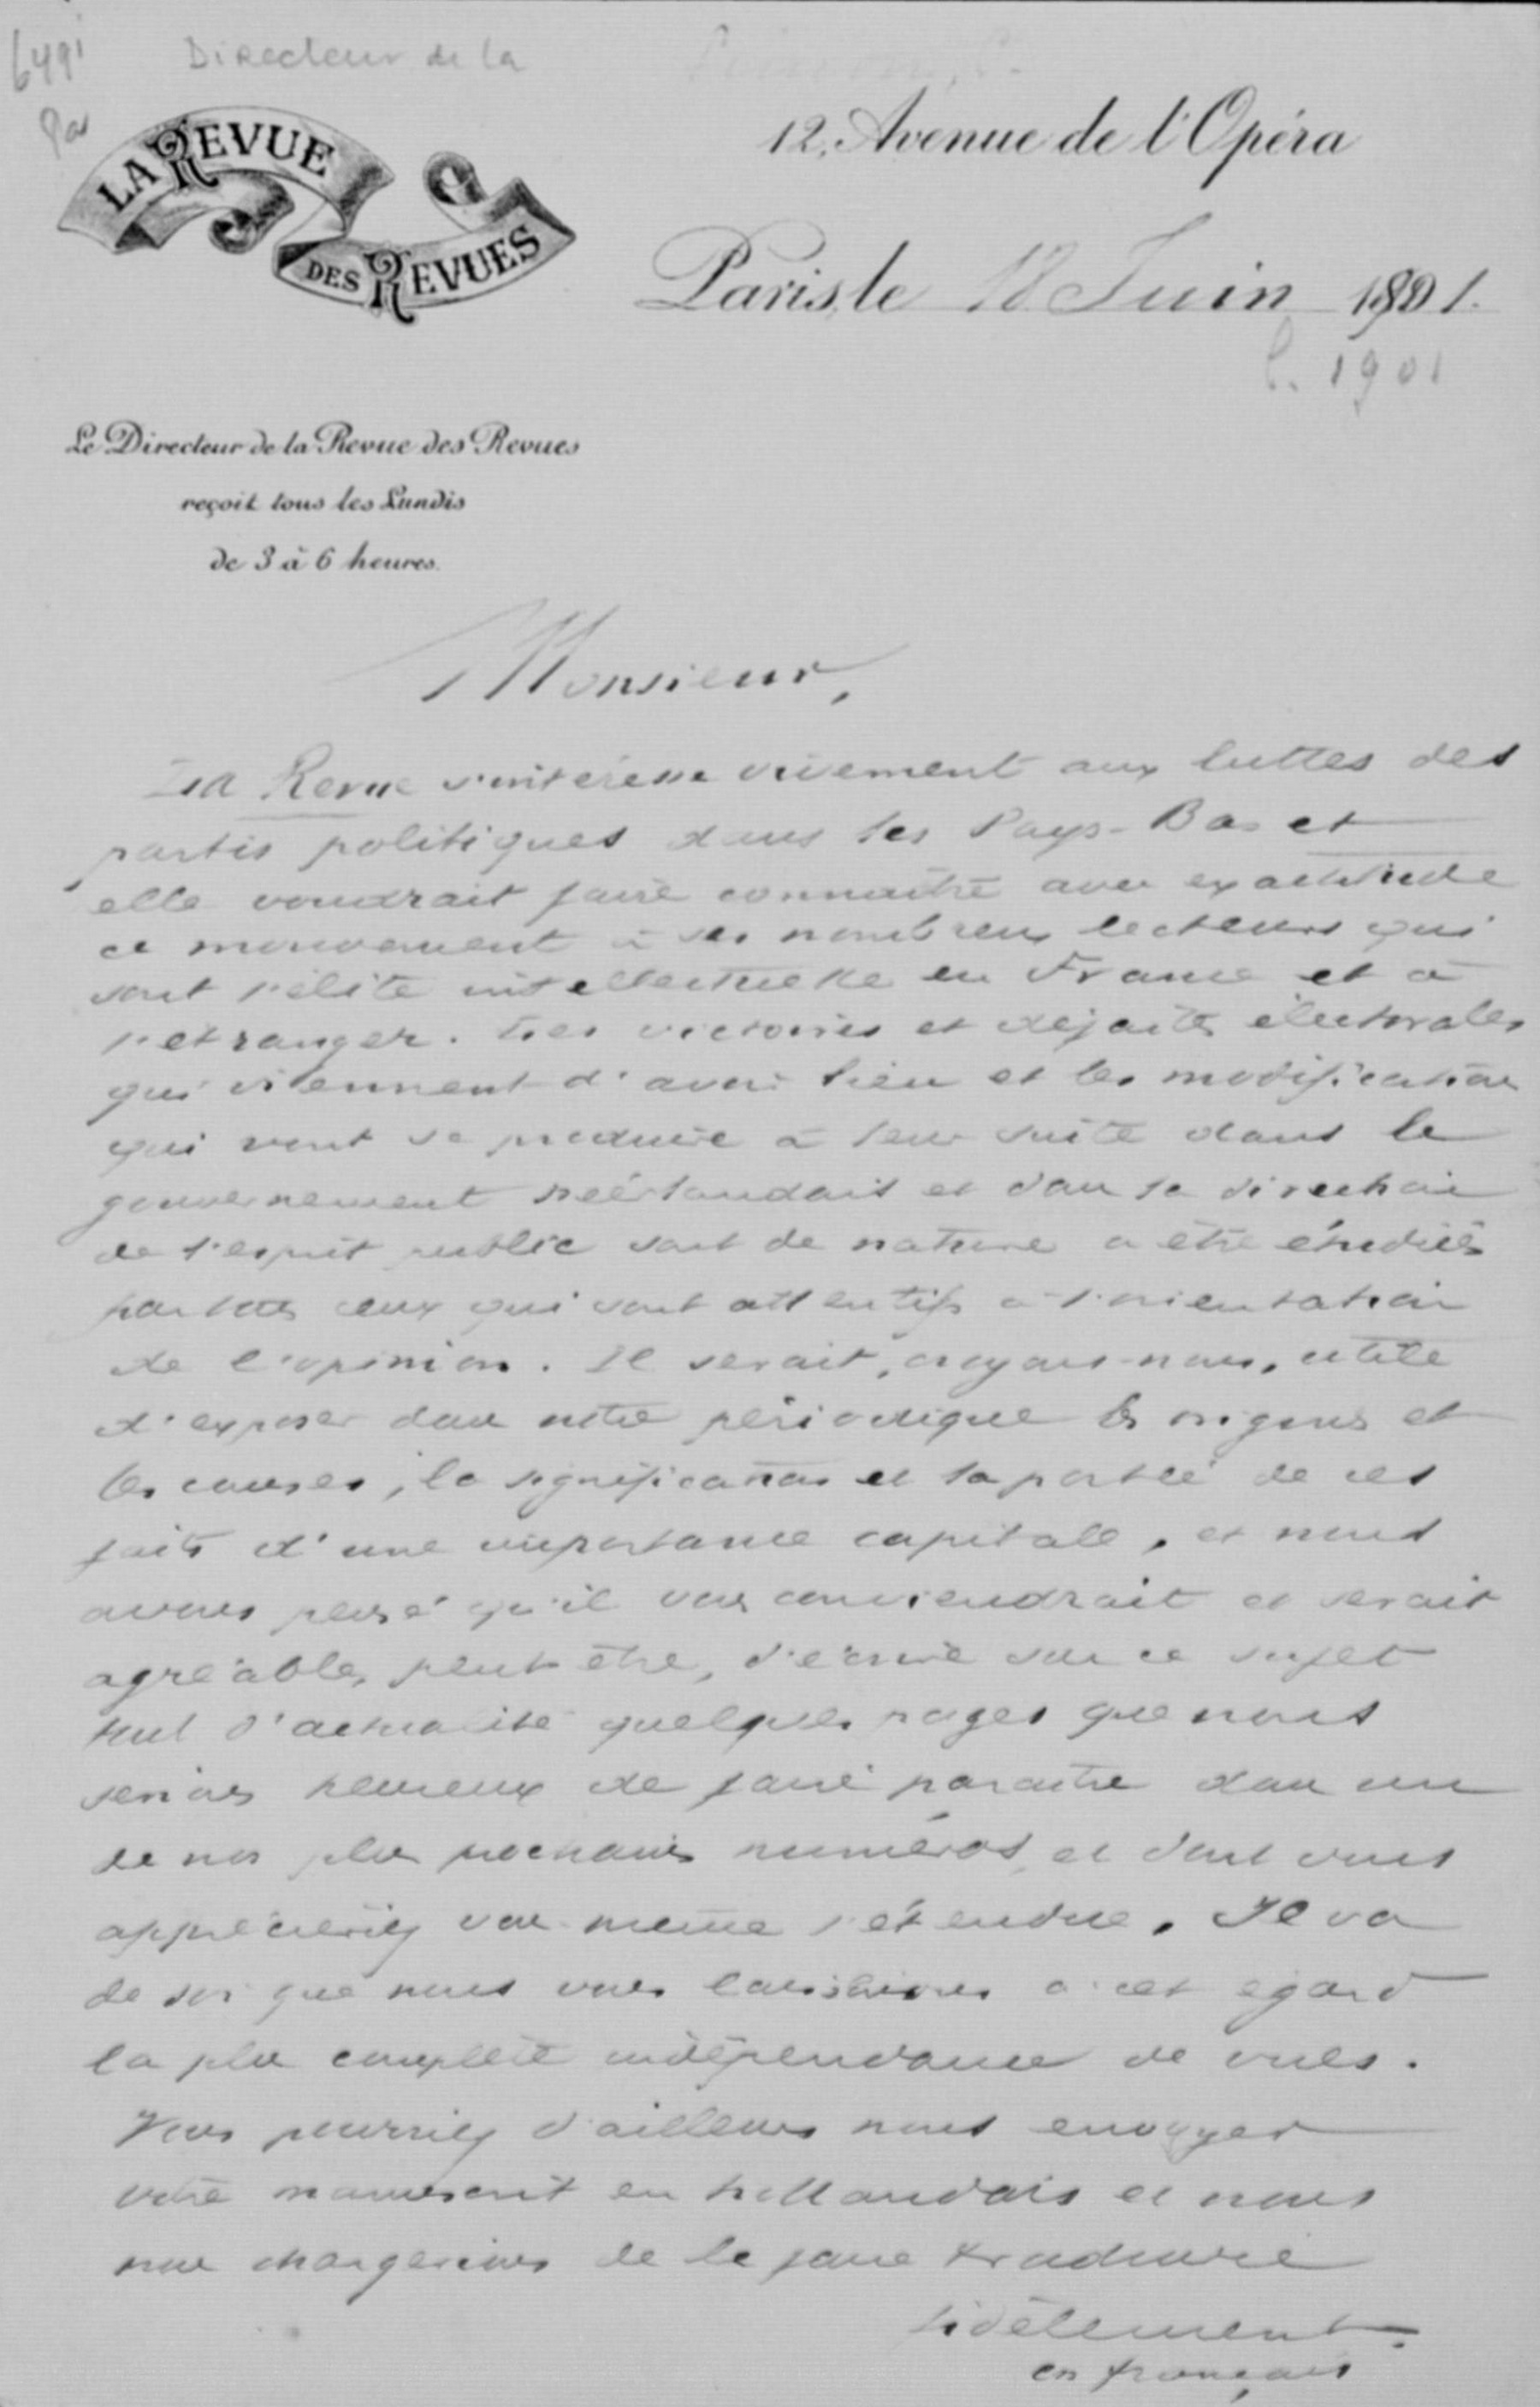 6491
Directeur de la
Par
LA REVUE
DES REVUES
12, Avenue de l'Opéra
Paris, le 18 Juin 1901.
1901
Le Directeur de la Revue des Revues
reçoit tous les Lundis
de 3 à 6 heures.
Monsieur,
La Revue s'intéresse vivement aux luttes des
partis politiques dans les Pays-Bas et
elle voudrait faire connaître avec exactitude
ce mouvement à ses nombreux lecteurs qui
sont l'élite intellectuelle en France et à
l'etranger. Les victoires et défaites électorales
qui viennent d'avoir lieu et les modifications
qui vont se produire à leur suite dans le
gouvernement néérlandais et dans la direction
de l'esprit public sont de nature a être étudiés
par tous ceux qui sont attentifs à l'orientation
de l'opinion. Il serait, croyons-nous, utile
d'exposer dans notre périodique les origines et
les causes, la signification et la portée de ces
faits d'une importance capitale, et nous
avons pensé qu'il vous conviendrait et serait
agréable, peut être, d'écrire sur ce sujet
tout d'actualité quelques pages que nous
serions heureux de faire paraitre dans un
de nos plus prochains numéros et dont vous
apprécieriez vous-même l'étendue. Il va
de soi que nous vous laissons à cet egard
la plus complète indépendance de vues.
Vous pourriez d'ailleurs nous envoyer
votre manuscrit en hollandais et nous
nous chargerions de le faire traduire
fidèlement
en français